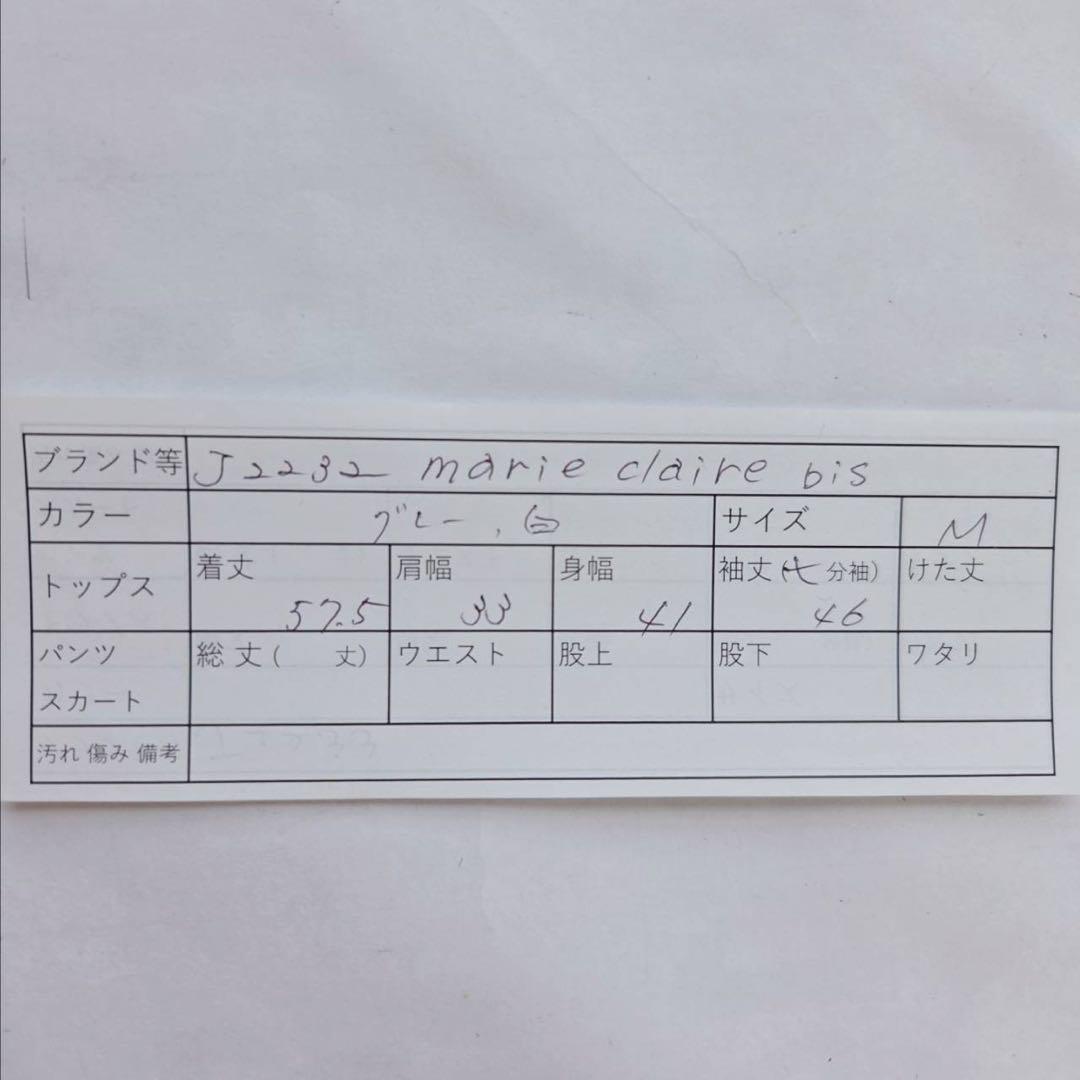 ブランド等 J2232 marie claire bis
カラー グレー、白 サイズ M
トップス 着丈 57.5 肩幅 33 身幅 41 袖丈(七分袖) 46 けた丈
パンツ スカート 総丈( 丈) ウエスト 股上 股下 ワタリ
汚れ 傷み 備考